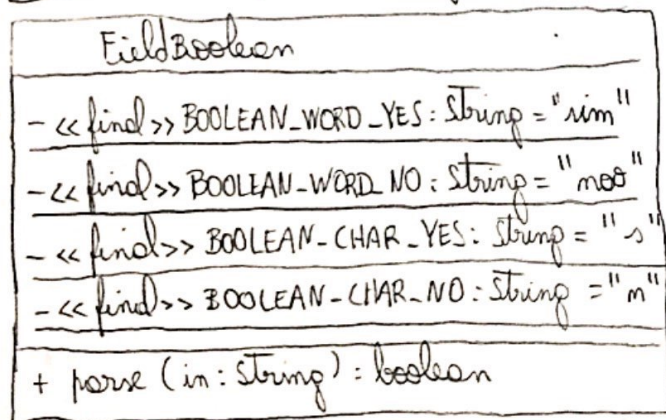 FieldBoolean
- << final >> BOOLEAN_WORD_YES : String = "sim"
- << final >> BOOLEAN_WORD_NO : String = "nao"
- << final >> BOOLEAN_CHAR_YES : String = "s"
- << final >> BOOLEAN_CHAR_NO : String = "n"
+ parse (in : String) : boolean